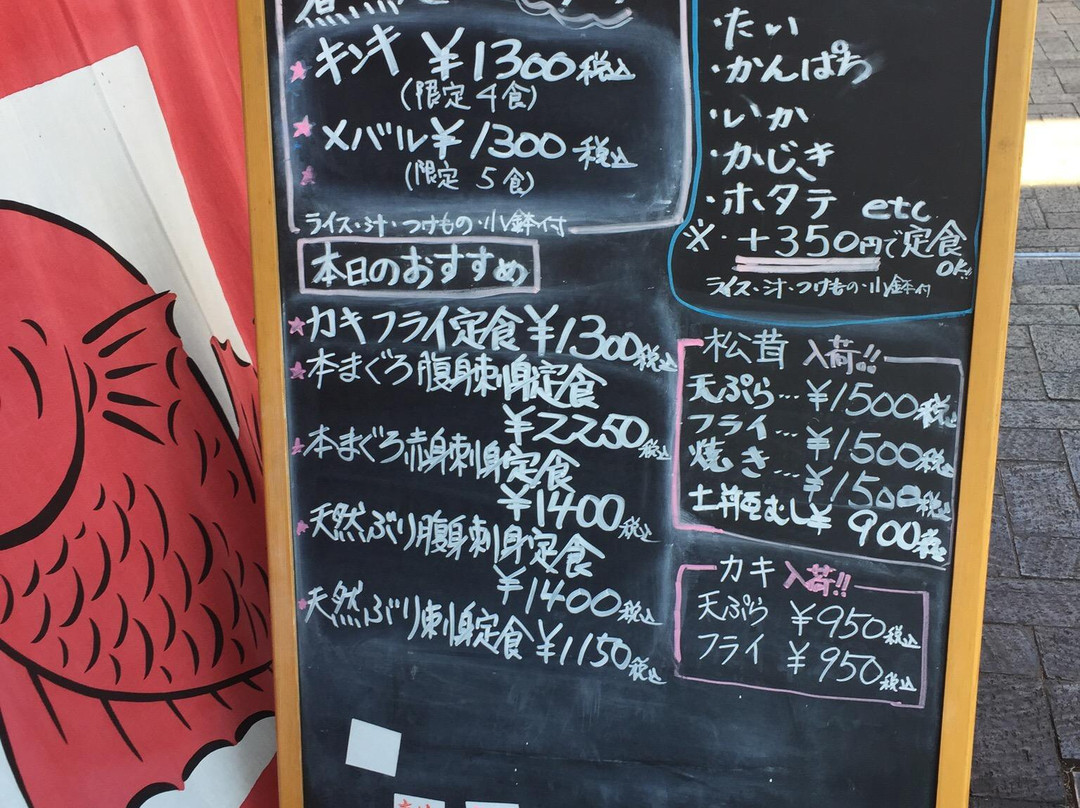 キンキ ¥1300税込
(限定4食)
メバル ¥1300税込
(限定5食)
ライス・汁・つけもの・小鉢付
本日のおすすめ
カキフライ定食 ¥1300税込
本まぐろ腹身刺身定食
¥2250税込
本まぐろ赤身刺身定食
¥1400税込
天然ぶり腹身刺身定食
¥1400税込
天然ぶり刺身定食 ¥1150税込
・たい
・かんぱち
・いか
・かじき
・ホタテ etc
※・+350円で定食
OK!!
ライス・汁・つけもの・小鉢付
松茸 入荷!!
天ぷら… ¥1500税込
フライ… ¥1500税込
焼き… ¥1500税込
土瓶むし ¥900税込
カキ 入荷!!
天ぷら ¥950税込
フライ ¥950税込